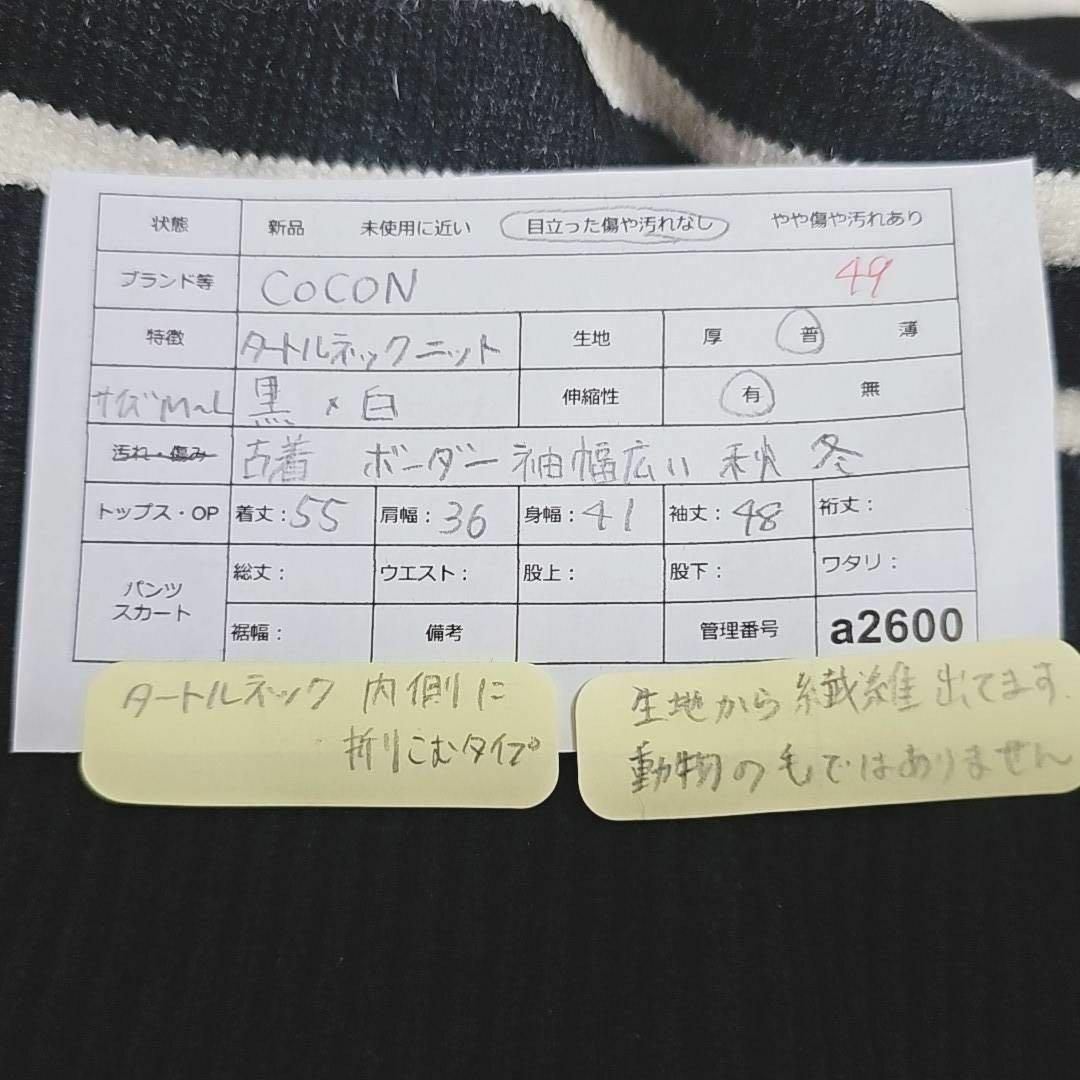 状態 新品 未使用に近い 目立った傷や汚れなし やや傷や汚れあり
ブランド等 COCON 49
特徴 タートルネックニット 生地 厚 普 薄
サイズM~L 黒×白 伸縮性 有 無
汚れ・傷み 古着 ボーダー 袖幅広い 秋 冬
トップス・OP 着丈:55 肩幅:36 身幅:41 袖丈:48 裄丈:
パンツ スカート 総丈: ウエスト: 股上: 股下: ワタリ:
裾幅: 備考 管理番号 a2600
タートルネック 内側に
折りこむタイプ。
生地から繊維出てます。
動物の毛ではありません